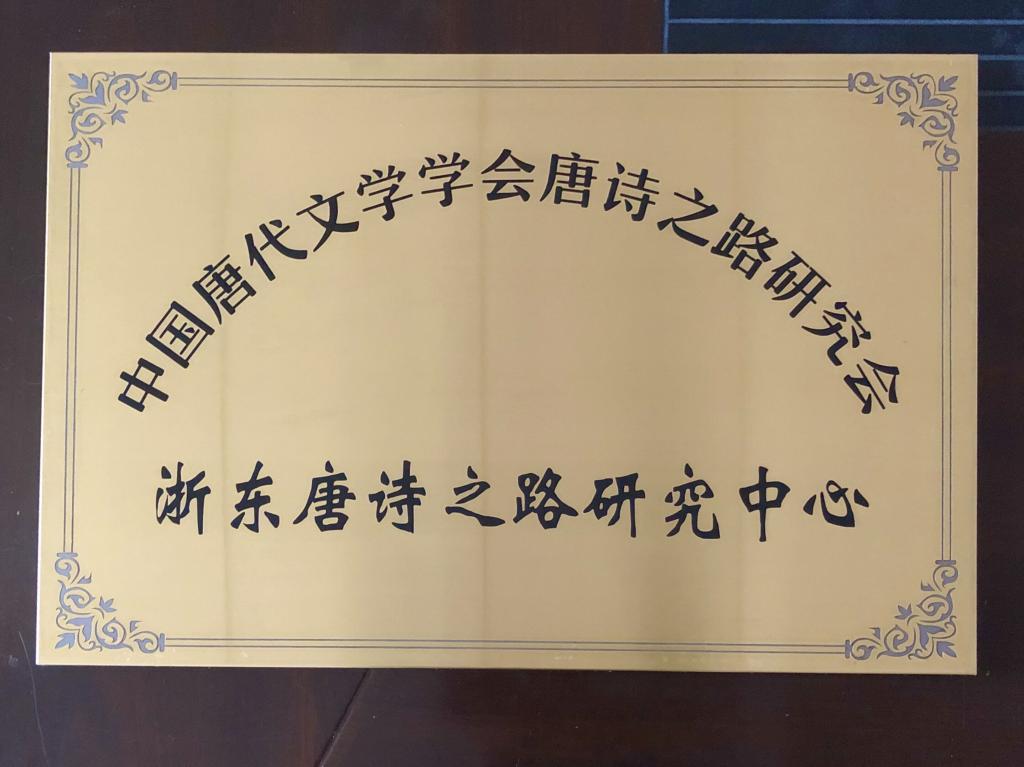 中国唐代文学学会唐诗之路研究会
浙东唐诗之路研究中心